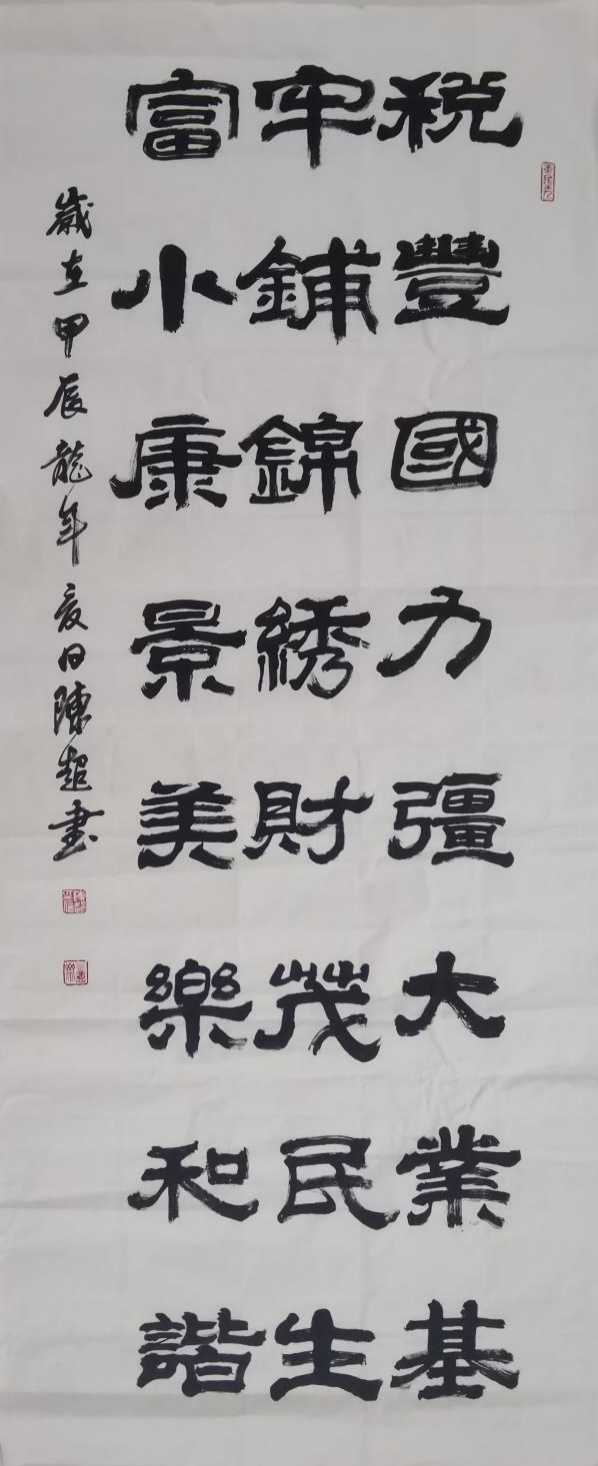 税豐國力彊大業基
牢鋪錦綉財茂民生
富小康景美樂和諧
歲在甲辰龍年夏日陳超書